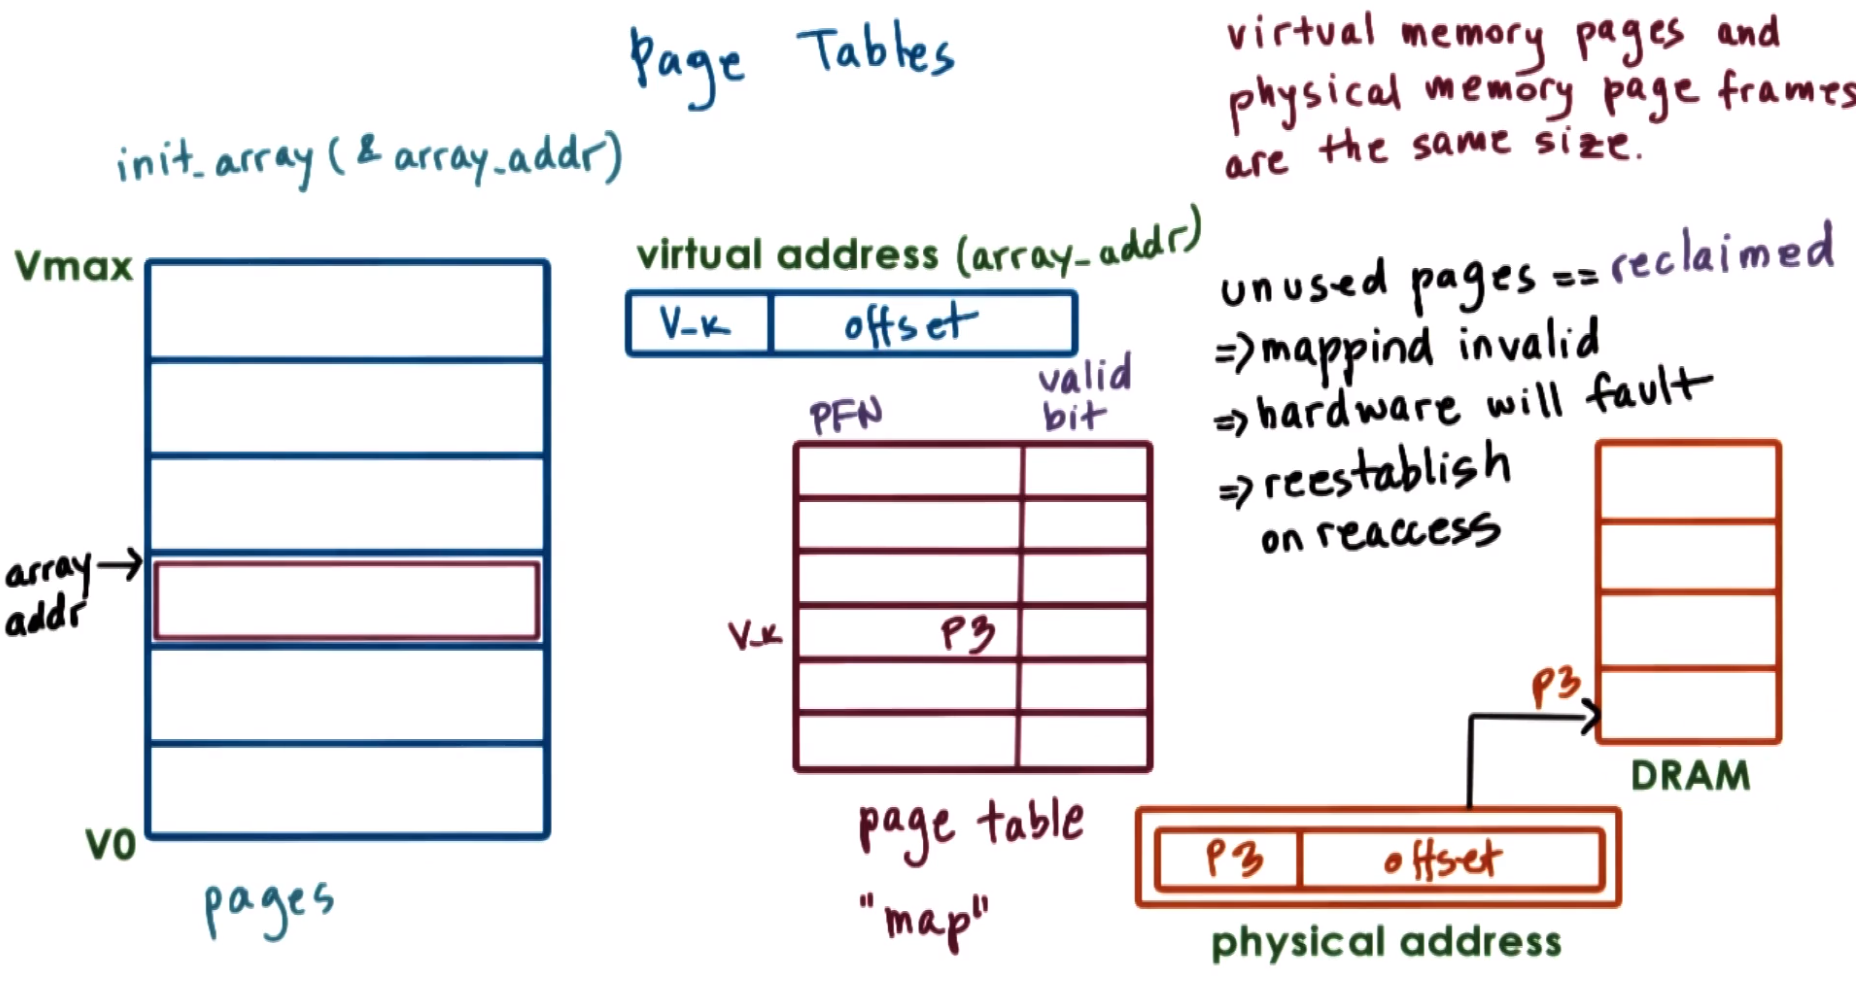 Page Tables
virtual memory pages and
physical memory page frames
are the same size.
init_array (& array_addr)
Vmax
array
addr
V0
pages
virtual address (array_addr)
V_k
offset
PFN
valid
bit
V_k
P3
page table
"map"
unused pages == reclaimed
=> mappind invalid
=> hardware will fault
=> reestablish
on reaccess
P3
DRAM
P3
offset
physical address